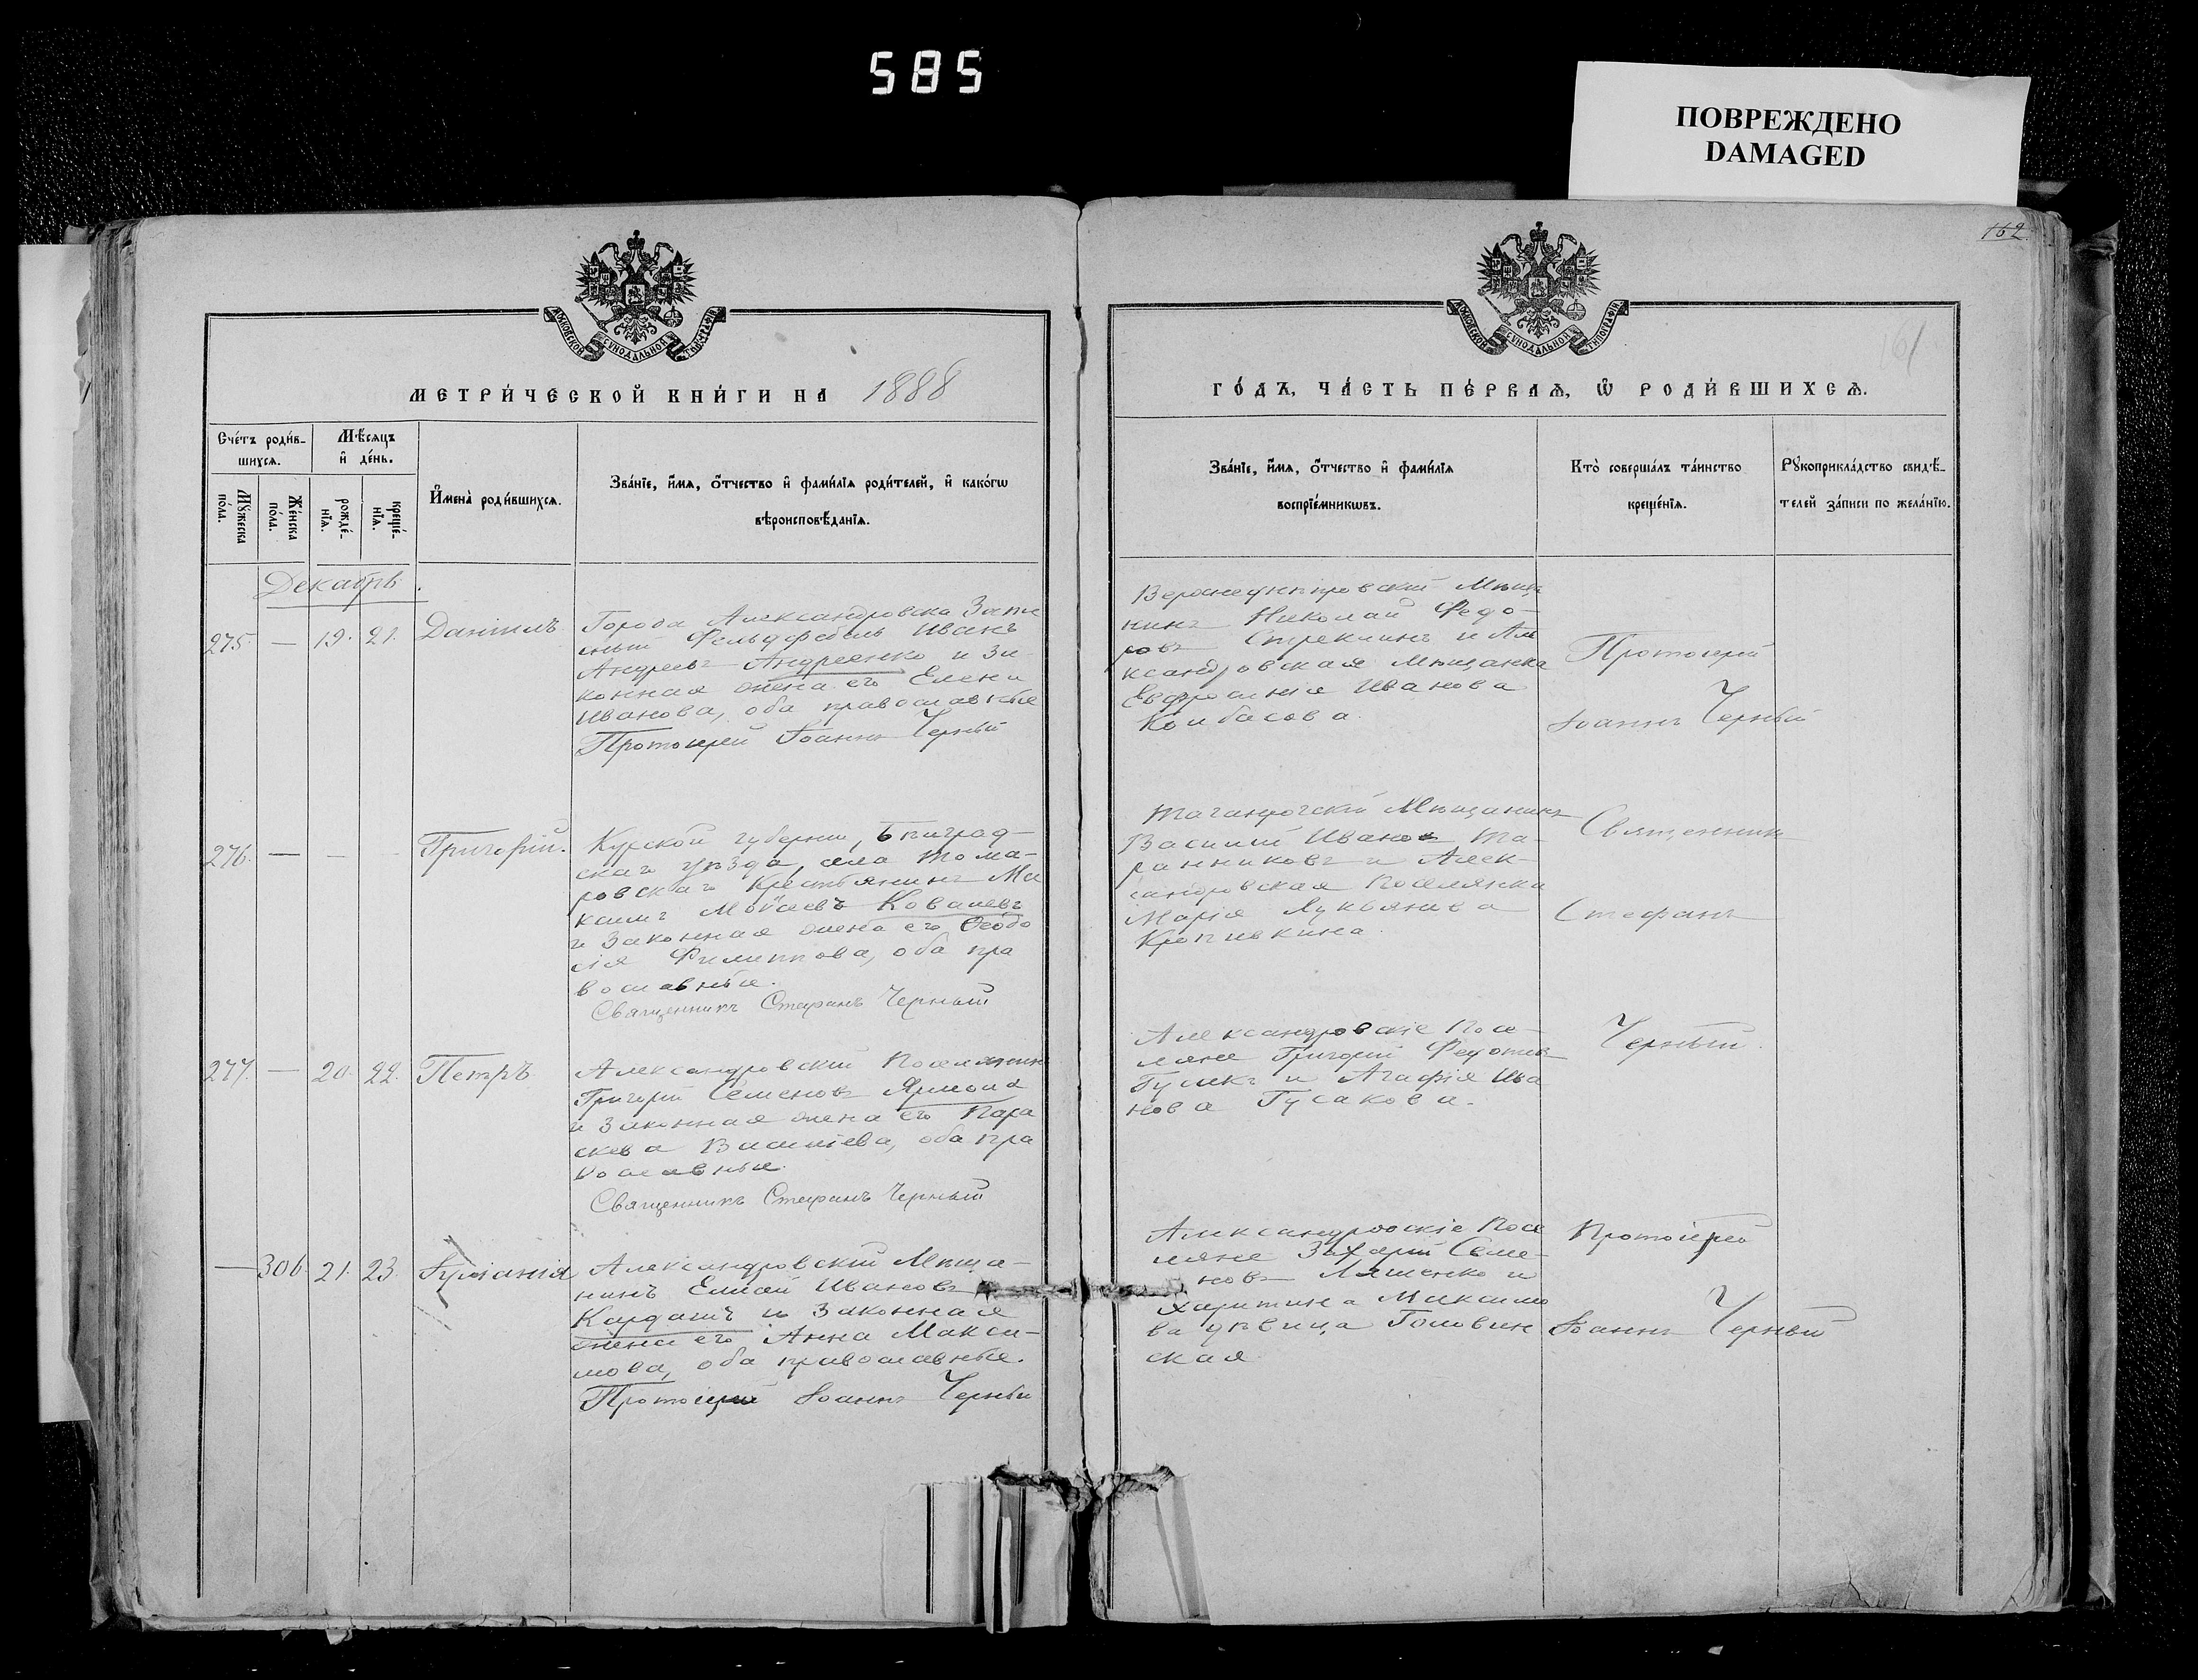 585
ПОВРЕЖДЕНО
DAMAGED
162
161
МОСКОВСКОЙ СѴНОДАЛЬНОЙ ТИПОГРАФІИ
МОСКОВСКОЙ СѴНОДАЛЬНОЙ ТИПОГРАФІИ
МЕТРИ́ЧЕСКОЙ КНИ́ГИ НА 1888
ГО́ДЪ, ЧА́СТЬ ПЕ́РВАѦ, Ѽ РОДИ́ВШИХСѦ.
Сче́тъ роди́в-
шихсѧ.
Мѣ́сѧцъ
и҆ де́нь.
Мꙋ́жеска
по́ла.
Же́нска
по́ла.
рожде́-
нїѧ.
креще́-
нїѧ.
И҆мена̀ роди́вшихсѧ.
Зва́нїе, и҆́мѧ, ѻ҆́тчество и҆ фами́лїѧ роди́телей, и҆ како́гѡ
вѣроисповѣ́данїѧ.
Зва́нїе, и҆́мѧ, ѻ҆́тчество и҆ фами́лїѧ
воспрїе́мникѡвъ.
Кто̀ соверша́лъ та́инство
креще́нїѧ.
Рꙋкоприкла́дство свидѣ́-
телей за́писи по жела́нїю.
Декабрь.
275. — 19. 21. Даніилъ
Города Александровска Запа
сный Фельдфебель Иванъ
Андреевъ Андреенко и За
конная жена его Елена
Иванова, оба православные
Протоіерей Іоаннъ Черный
Верхнеднѣпровскій Мѣща
нинъ Николай Федо-
ровъ Стреклинъ и Але
ксандровская Мѣщанка
Евфросинія Иванова
Колбасова.
Протоіерей
Іоаннъ Черный
276. — — — Григорій.
Курской губерніи, Бѣлград-
скаго уѣзда, села Тома-
ровскаго Крестьянинъ Ма
ксимъ Мойсеевъ Ковалевъ
и Законная жена его Ѳеодо
сія Филиппова, оба пра
вославные.
Священникъ Стефанъ Черный
Таганрогскій Мѣщанинъ
Василій Ивановъ Та-
ранниковъ и Алек-
сандровская Поселянка
Марія Лукьянова
Кропивкина.
Священникъ
Стефанъ
Черный.
277. — 20. 22. Петръ
Александровскій Поселянинъ
Григорій Семеновъ Ярмола
и Законная жена его Пара
скева Василіева, оба пра
вославные.
Священникъ Стефанъ Черный
Александровскіе Посе-
ляне Григорій Федотовъ
и Агафія Ива
нова Гусакова.
— 306. 21. 23. Іуліанія
Александровскій Мѣща-
нинъ Елисей Ивановъ
Кардашъ и Законная
жена его Анна Макси-
мова, оба православные.
Протоіерей Іоаннъ Черный
Александровскіе Посе
ляне Захарій Семе-
новъ Ляшенко и
Харитина Максимо
ва дѣвица Головин
ская
Протоіерей
Іоаннъ Черный